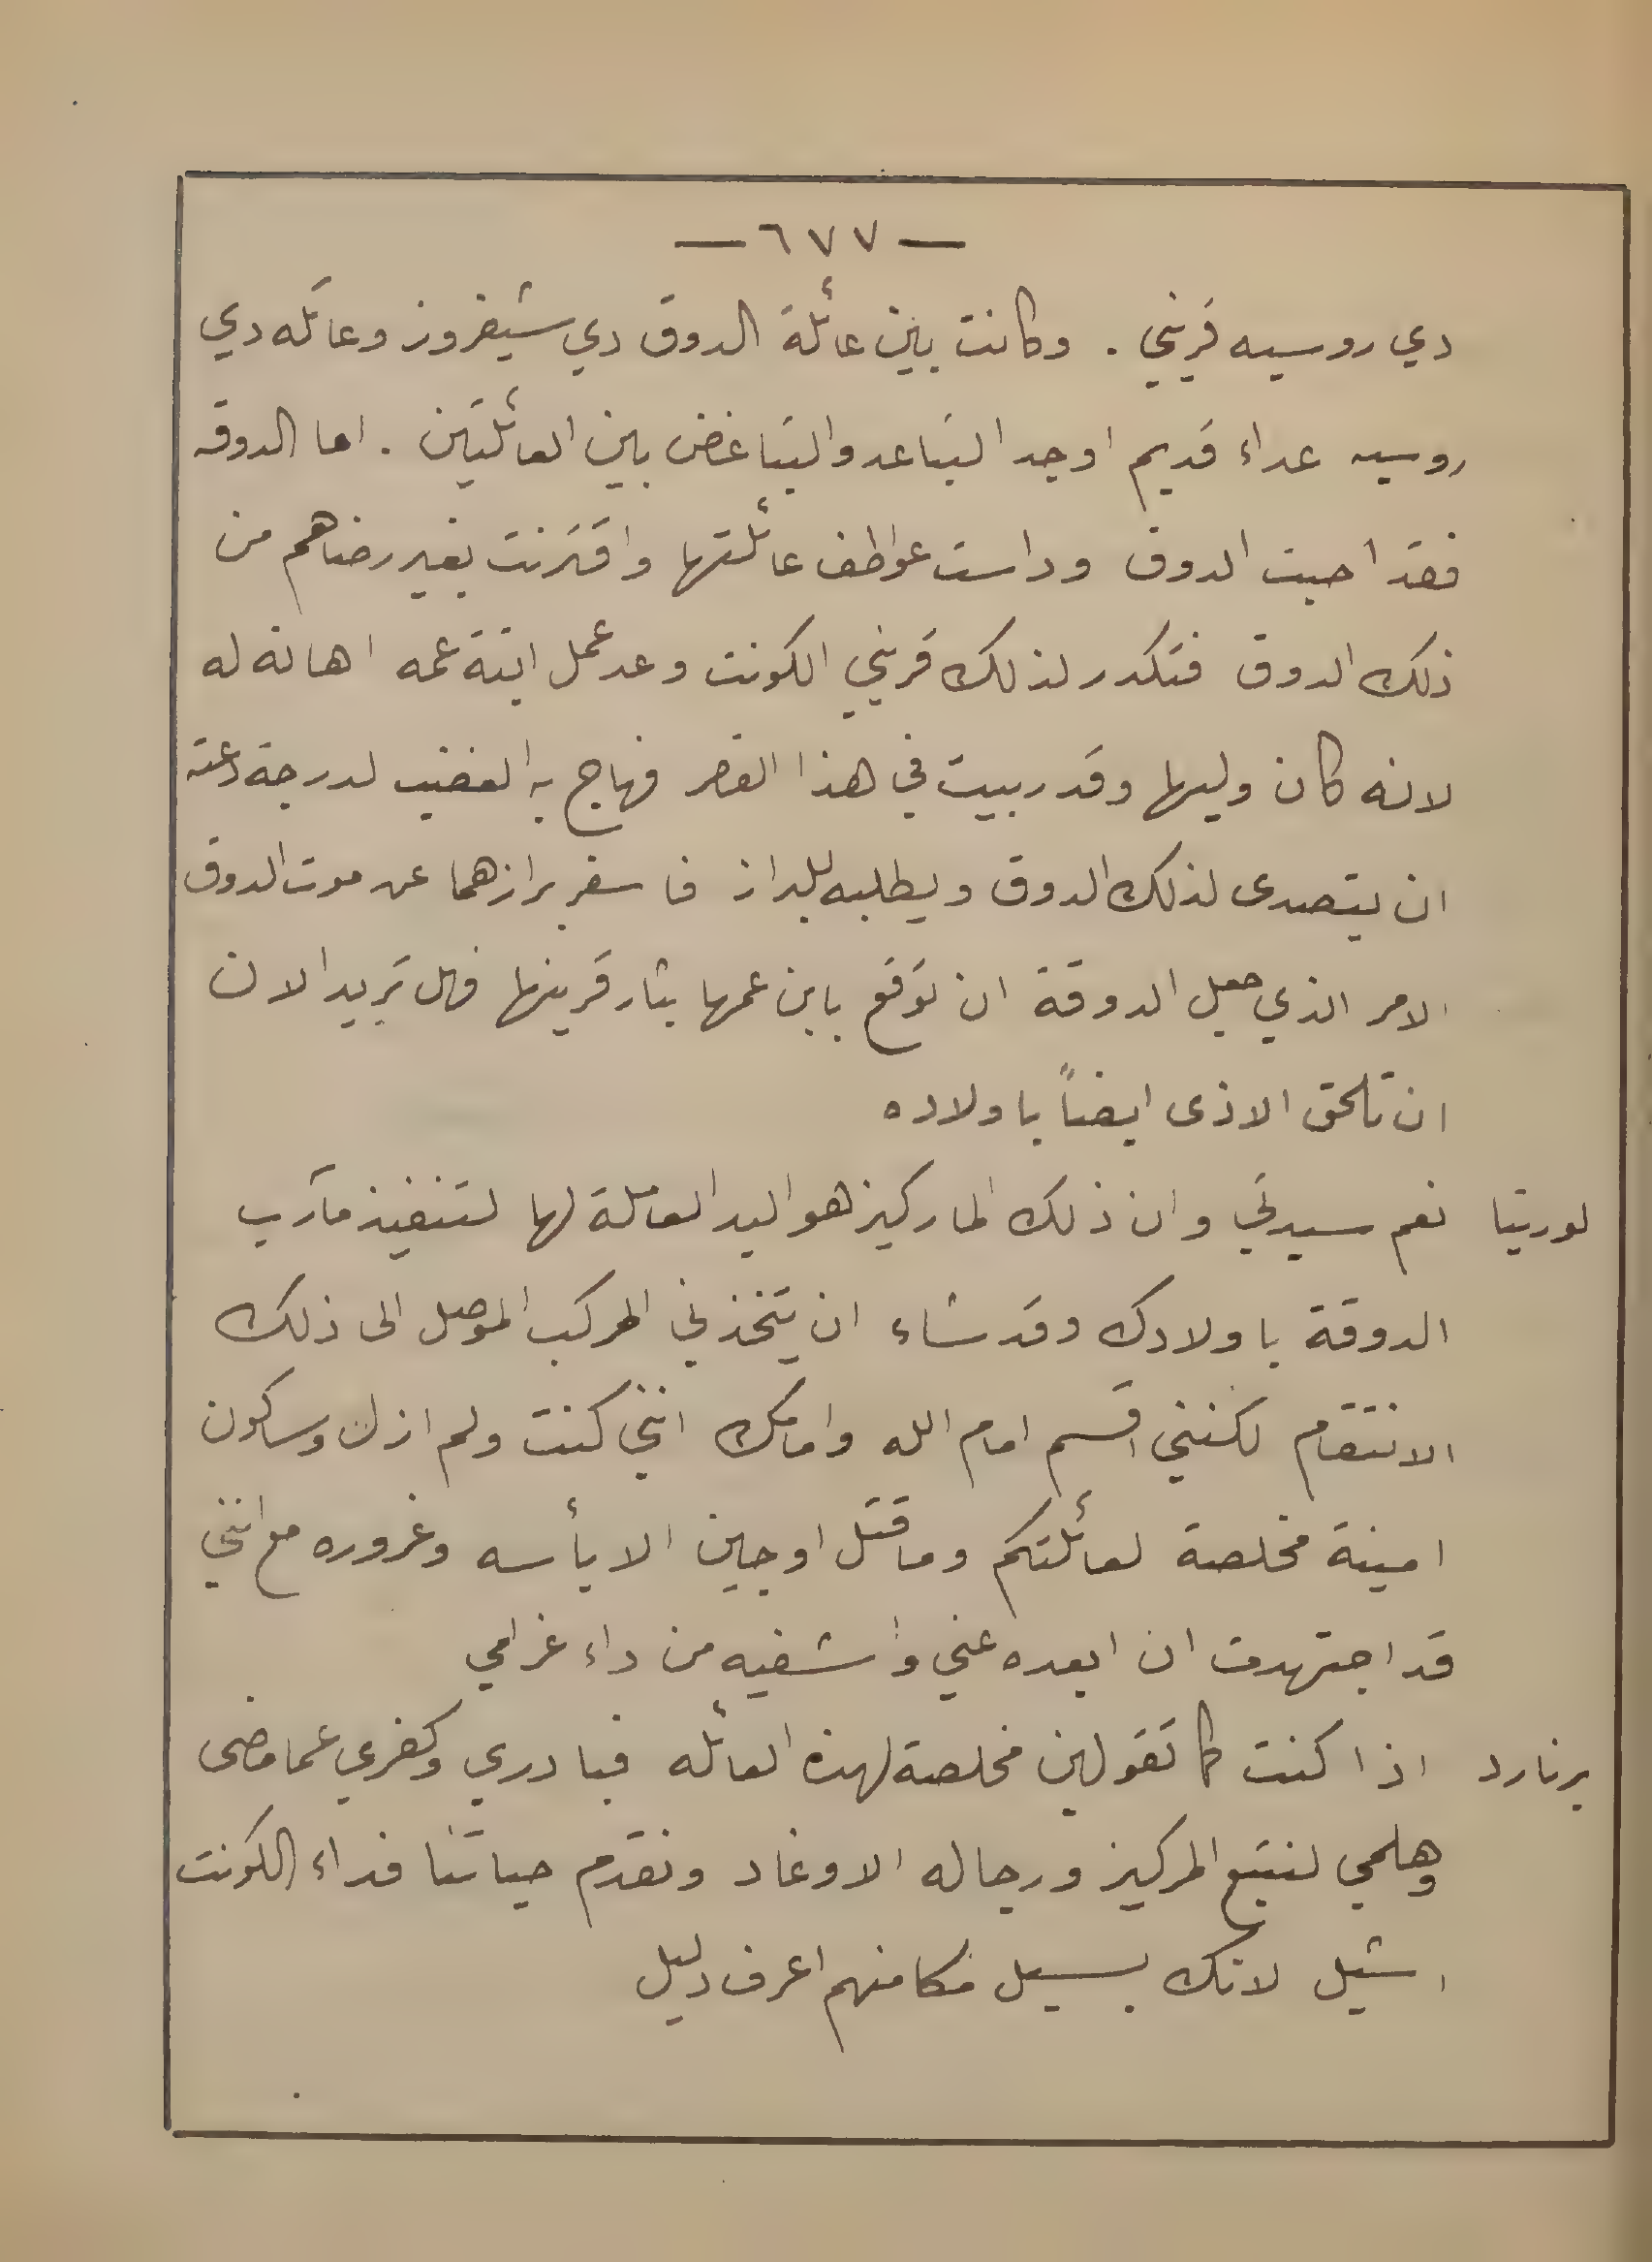 — ٦٧٧ —
دي روسيه قريني . وكانت بين عائلة الدوق دي شيفروز وعائله دي
روسيه عداء قديم اوجد التباعد والتباغض بين العائلتين . اما الدوقه
فقد احبت الدوق وداست عواطف عائلتها واقترنت بغير رضاهم من
ذلك الدوق فتكدر لذلك قريني الكونت وعد عمل ابنة عمه اهانه له
لانه كان وليها وقد ربيت في هذا القصر فهاج به الغضب لدرجة دعته
ان يتصدى لذلك الدوق ويطلبه للبراز فاسفر برازهما عن موت الدوق
الامر الذي جعل الدوقة ان توقع بابن عمها بثار قرينها فهل تريد الان
ان تلحق الاذى ايضاً باولاده
لوريتا نعم سيدتي وان ذلك الماركيز هو اليد العاملة لها لتنفيذ مآرب
الدوقة باولادك وقد شاء ان يتخذني المركب الموصل الى ذلك
الانتقام لكنني اقسم امام الله وامامك انني كنت ولم ازل وساكون
امينة مخلصة لعائلتكم وما قتل اوجين الا يأسه وغروره مع انني
قد اجتهدت ان ابعده عني واشفيه من داء غرامي
برنارد اذا كنت كما تقولين مخلصة لهذه العائله فبادري وكفري عما مضى
وهلمي لنتبع المركيز ورجاله الاوغاد ونقدم حياتنا فداء الكونت
اشيل لانك بسبيل مكامنهم اعرف دليل